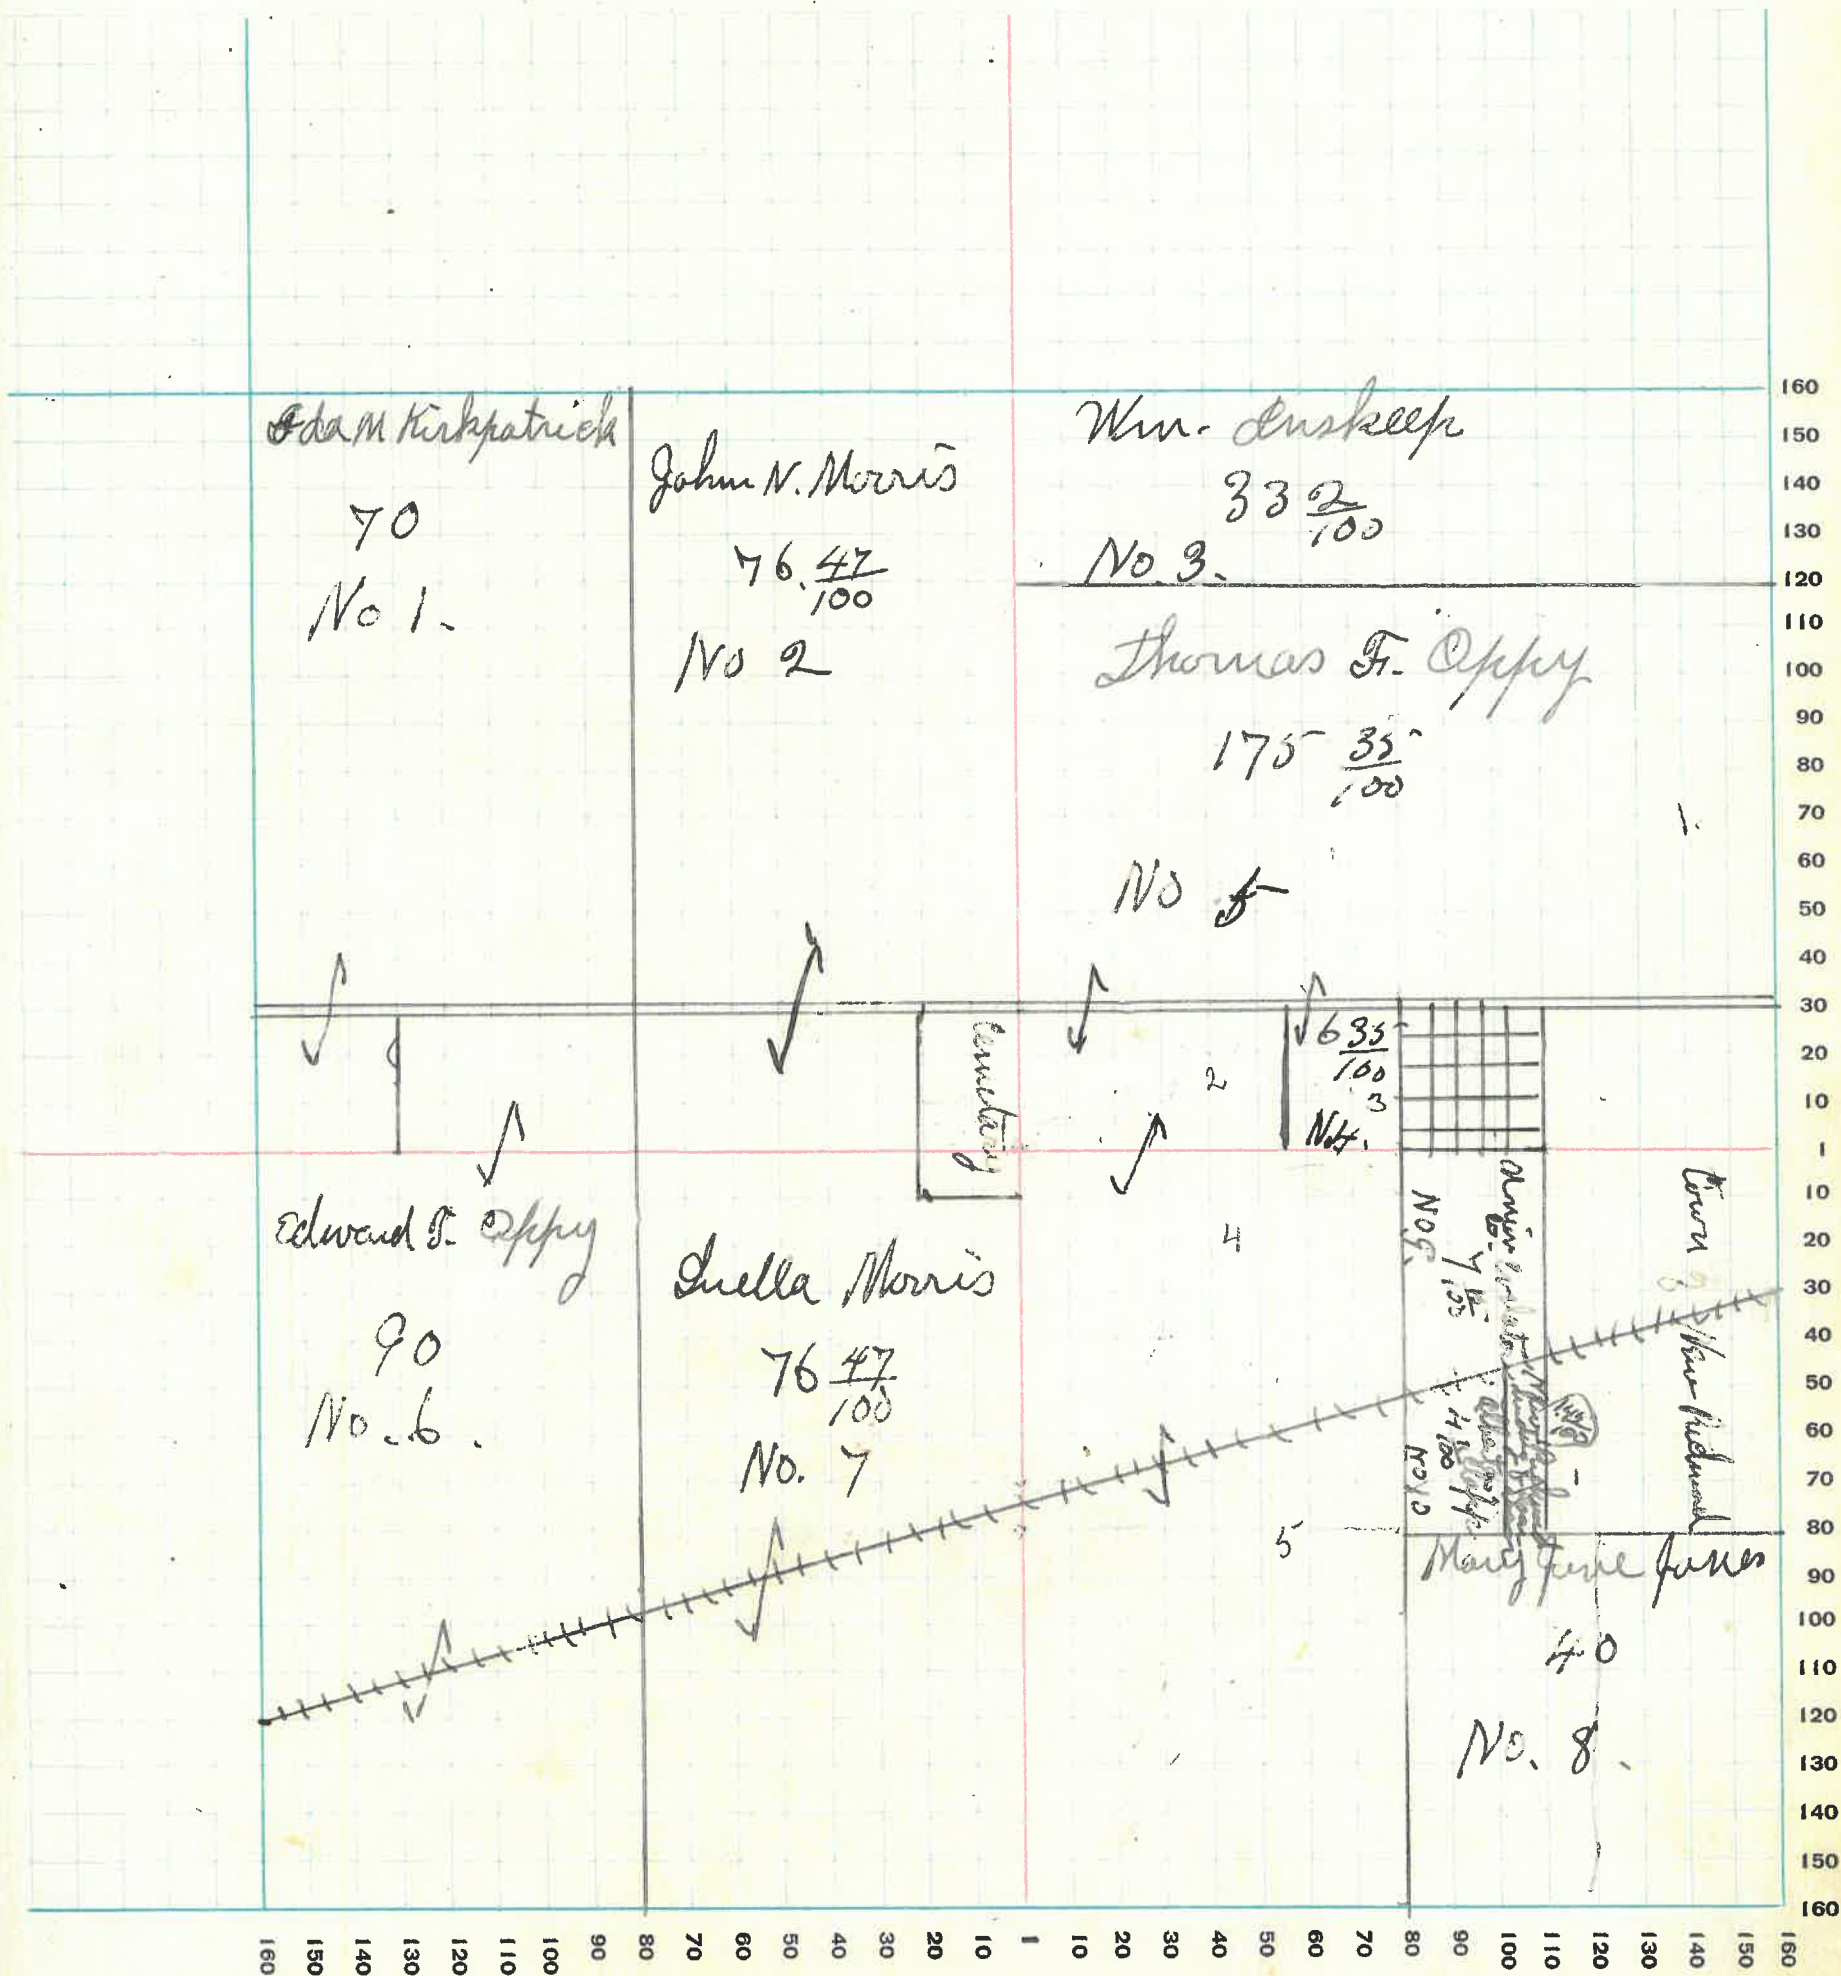 Ida M Kirkpatrick
70
No 1.
John N. Morris
76. 47/100
No 2
Wm. Inskeep
33 2/100
No. 3.
Thomas F. Oppy
175 35/100
No 5
Cemetary
2
6 35/100
3
No 4.
Edward F. Oppy
90
No. 6.
Luella Morris
76 47/100
No. 7
4
5
No 9.
7
Town of New Richmond
No 10
Mary Jane Jones
40
No. 8.
160
150
140
130
120
110
100
90
80
70
60
50
40
30
20
10
1
10
20
30
40
50
60
70
80
90
100
110
120
130
140
150
160
160 150 140 130 120 110 100 90 80 70 60 50 40 30 20 10 1 10 20 30 40 50 60 70 80 90 100 110 120 130 140 150 160